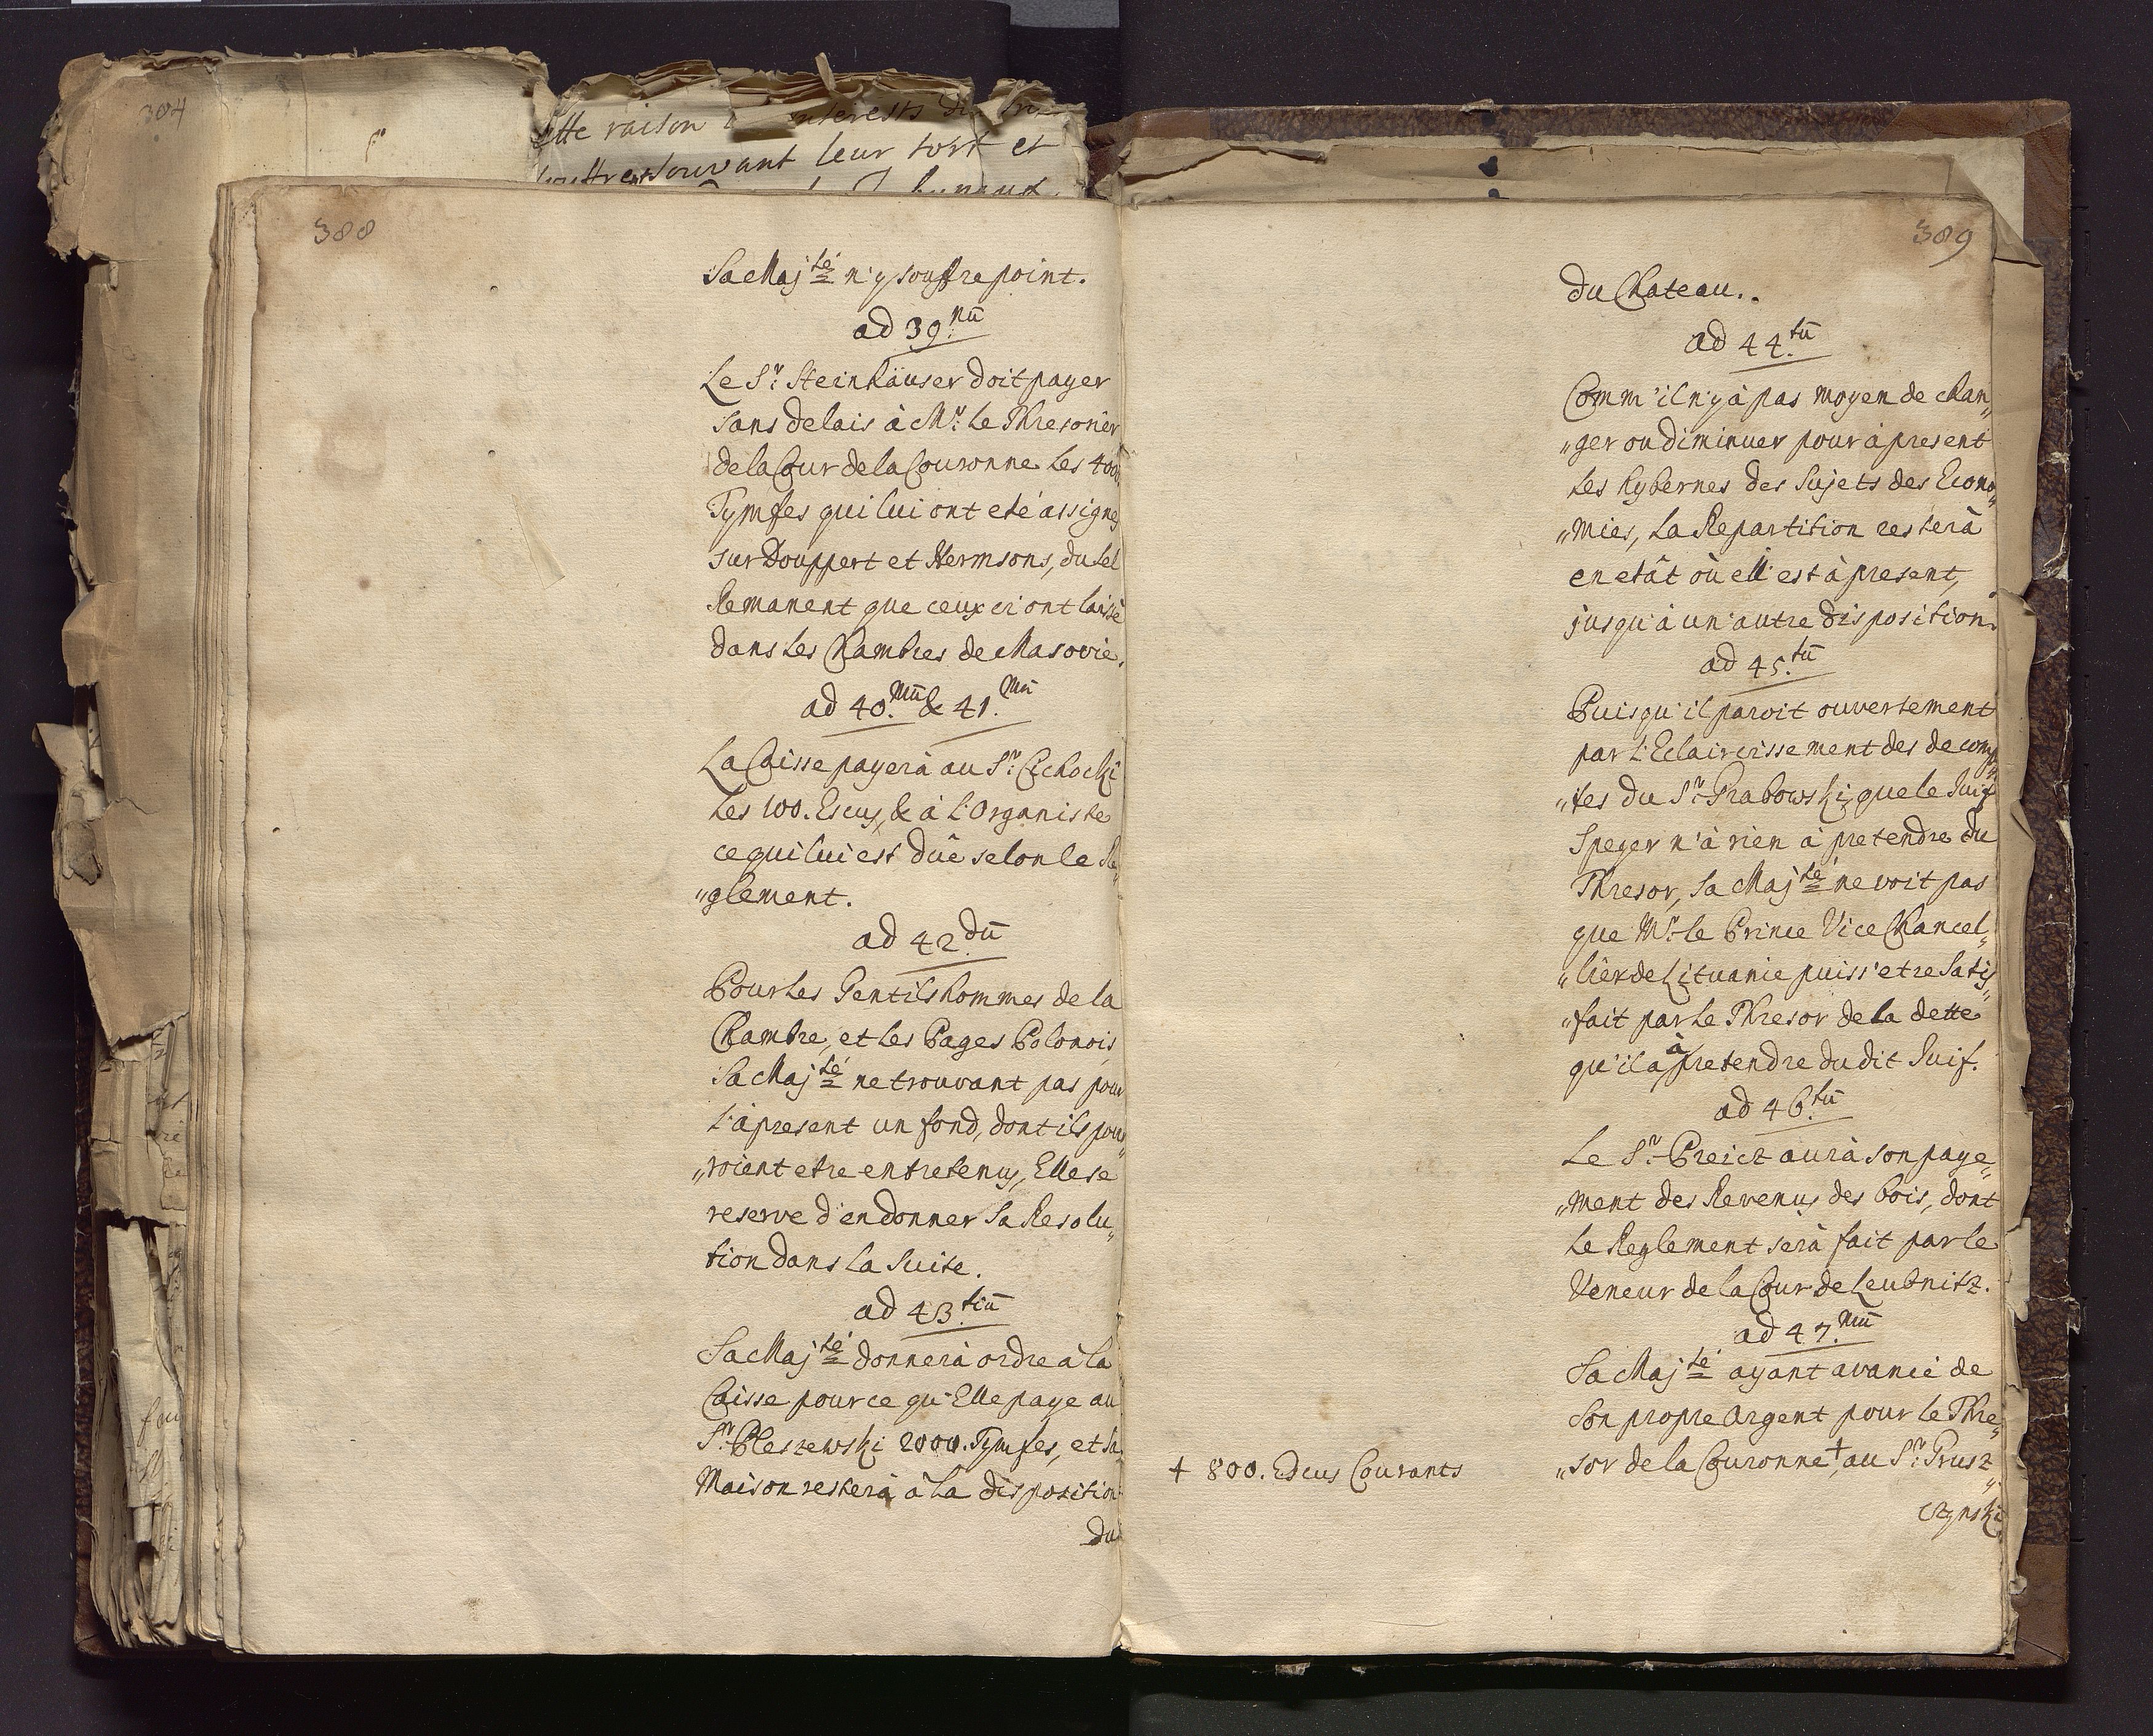 304
ette raison interests
leur tort et
388
Sa Maj.té n'y souffre point.
ad 39.nū
Le S.r Steinhäuser doit payer
sans delais à Mr. le Thresorier
de la Cour de la Couronne les 4000
Tymfes qui lui ont eté assignes
sur Douppert et Hermsons, du sel
Remanent que ceux ci ont laissé
dans les Chambres de Masovie.
ad 40.mū & 41.mū
La Caisse payerà au S.r Cichocki
les 100. Escus, & à l'Organiste
ce qui lui est dûe selon le Re„
„glement.
ad 42.dū
Pour les Gentilshommes de la
Chambre, et les Pages Polonois
Sa Maj.té ne trouvant pas pour
l'àpresent un fond, dont ils pour„
„roient etre entretenus, Elle se
reserve d'en donner Sa Resolu„
tion dans la Suite.
ad 43.tiū
Sa Maj.té donnerà ordre à la
Caisse pource qu'Elle paye au
S.r Pleszewski 2000. Tymfes, et sa
Maison resterà à la disposition
du
389
du Chateau..
ad 44.tū
Comm'il n'y à pas moyen de chan„
„ger ou diminuer pour à present
les hybernes des Sujets des Econo„
„mies, la Repartition resterà
en etât où ell'est à present,
jusqu'à un'autre disposition.
ad 45.tū
Puisqu'il paroit ouvertement
par l'Eclaircissement des decomp„
„tes du S.r Grabowski, que le Juif
Speyer n'à rien à pretendre du
Thresor, Sa Maj.té ne voit pas
que Mr. le Prince Vice Chancel„
„lier de Lituanie puiss'etre Satis„
„fait par le Thresor de la dette
qu'il a à pretendre du dit Juif.
ad 46.tū
Le S.r Preicz aurà son paye„
„ment des Revenus des bois, dont
le Reglement serà fait par le
Veneur de la Cour de Leubnitz.
ad 47.mū
Sa Maj.té ayant avancé de
Son propre Argent pour le Thre„
„sor de la Couronne †, au S.r Grusz„
† 800. Edcus Courants
czynski